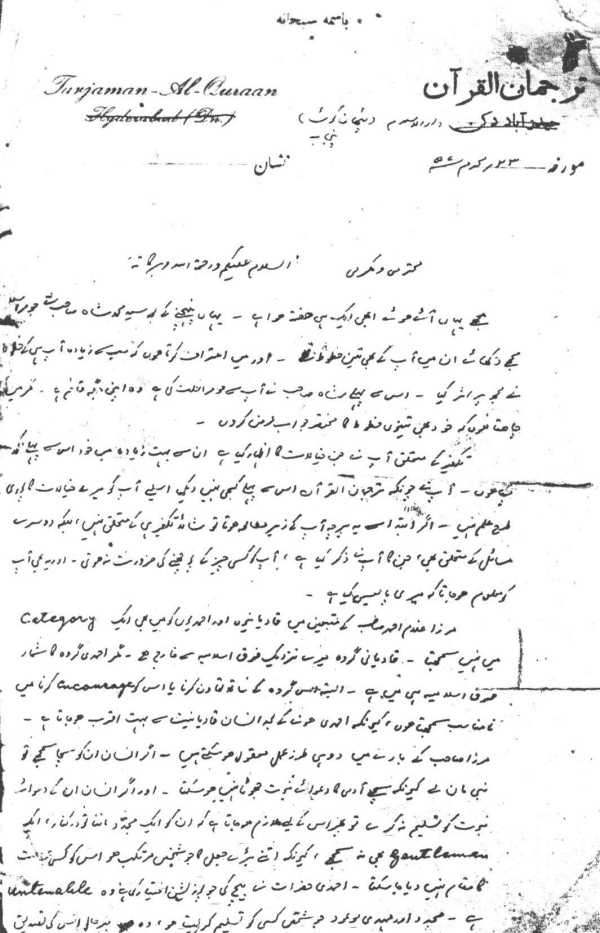 باسمہ سبحانہ
Turjaman-Al-Quraan
ترجمان القرآن
Hyderabad (Dn.)
حیدرآباد دکن دارالاسلام
پنجاب
مورخہ ۲۳ محرم ۵۷ھ
نشان
محترمی و مکرمی السلام علیکم ورحمۃ اللہ وبرکاتہ
مجھے یہاں آئے ہوئے ابھی ایک ہی ہفتہ ہوا ہے ۔ یہاں پہنچنے کے بعد سید محمد شاہ صاحب نے
مجھے دکھائے ان میں آپ کے بھی تین خطوط تھے ۔ اور میں اعتراف کرتا ہوں کہ سب سے زیادہ آپ ہی کے
نے مجھ پر اثر کیا ۔ اس سے پہلے شاہ صاحب نے آپ سے جو مراسلت کی ہے وہ اپنی جگہ قائم ہے ۔
چاہتا ہوں کہ خود بھی تینوں خطوط کا مختصر جواب عرض کردوں ۔
تکفیر کے متعلق آپ نے جن خیالات کا اظہار کیا ہے ان سے بہت زیادہ میں خود اس سے پہلے لکھ
چکا ہوں ۔ آپ نے چونکہ ترجمان القرآن اس سے پہلے کبھی نہیں دیکھا اسلیے آپ کو میرے خیالات کا پوری
طرح علم نہیں ۔ اگر ابتدا سے یہ پرچہ آپ کے زیر مطالعہ ہوتا تو شاید تکفیر ہی کے متعلق نہیں، بلکہ دوسرے
مسائل کے متعلق بھی، جن کا آپ نے ذکر کیا ہے، آپ کو کسی چیز کے پوچھنے کی ضرورت نہ ہوتی ۔ اور یہ بھی آپ
کو معلوم ہو جاتا کہ میری پالیسی کیا ہے ۔
مرزا غلام احمد صاحب کے متبعین میں قادیانیوں اور احمدیوں کو میں بھی ایک Category
میں نہیں سمجھتا ۔ قادیانی گروہ میرے نزدیک فرق اسلامیہ سے خارج ہے ۔ مگر احمدی گروہ کا شمار
فرق اسلامیہ ہی میں ہے ۔ البتہ اس گروہ کے ساتھ تعاون کرنا یا اس کو encourage کرنا میں
نامناسب سمجھتا ہوں، کیونکہ احمدی ہونے کے بعد انسان قادیانیت سے بہت اقرب ہو جاتا ہے ۔
مرزا صاحب کے بارے میں دو ہی طرز عمل معقول ہو سکتے ہیں ۔ اگر انسان ان کو سچا سمجھے تو
نبی مان لے کیونکہ سچے آدمی کا دعوائے نبوت جھوٹا نہیں ہو سکتا ۔ اور اگر انسان ان کے دعوائے
نبوت کو تسلیم نہ کرے تو پھر اس کے لیے لازم ہو جاتا ہے کہ ان کو ایک مجدد ماننا تو درکنار، ایک
gentleman بھی نہ سمجھے، کیونکہ اتنے بڑے جعل کا جو شخص مرتکب ہو اس کو کسی
کا مقام نہیں دیا جا سکتا ۔ احمدی حضرات نے بیچ کی جو پوزیشن اختیار کی ہے وہ untenable
ہے ۔ مجدد اور مہدی موعود جو شخص کسی کو تسلیم کر لیتا ہو، وہ بہرحال اس کی تصدیق